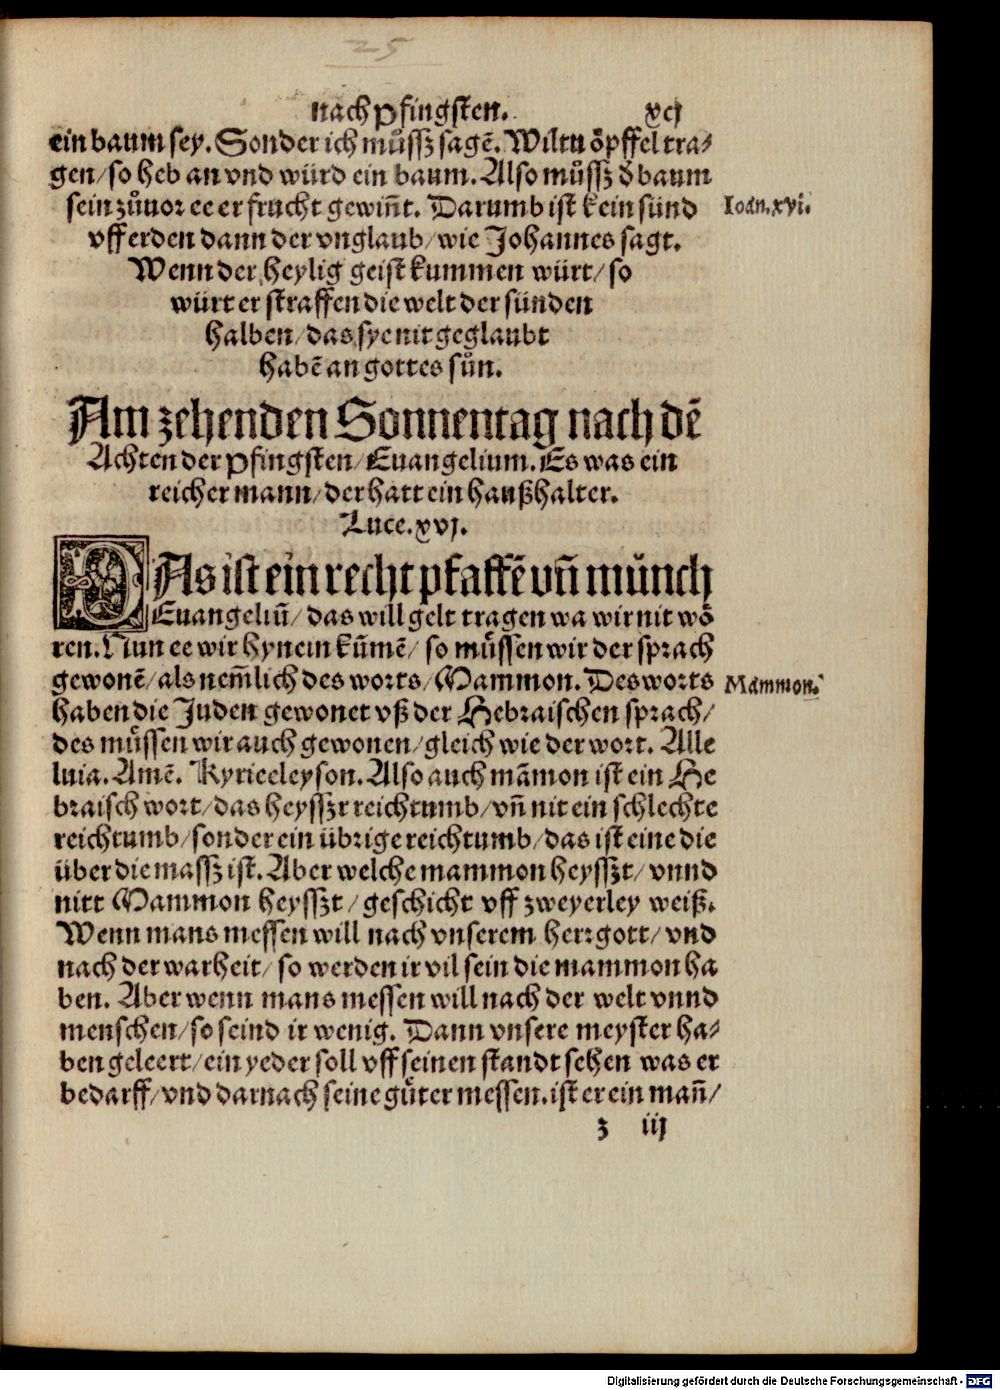 25
nach Pfingsten. xcj
ein baum sey. Sonder ich můssz sagē. Wiltu öpffel tra⸗
gen/ so heb an vnd würd ein baum. Also můssz d baum
sein zůuor ee er frucht gewiñt. Darumb ist kein sünd
Ioan. xvi.
vff erden dann der vnglaub/ wie Johannes sagt.
Wenn der heylig geist kummen würt/ so
würt er straffen die welt der sünden
halben/ das sye nit geglaubt
habē an gottes sůn.
Am zehenden Sonnentag nach dē
Achten der Pfingsten/ Euangelium. Es was ein
reicher mann/ der hatt ein haußhalter.
Luce. xvj.
DAs ist ein recht pfaffē vñ münch
Euangeliū/ das will gelt tragen wa wir nit wö
ren. Nun ee wir hynein kūmē/ so müssen wir der sprach
gewonē/ als nem̄lich des worts/ Mammon. Des worts
Mammon.
haben die Juden gewonet vß der Hebraischen sprach/
des müssen wir auch gewonen/ gleich wie der wort. Alle
luia. Amē. Kyrieeleyson. Also auch māmon ist ein He
braisch wort/ das heysszt reichtumb/ vñ nit ein schlechte
reichtumb/ sonder ein übrige reichtumb/ das ist eine die
über die massz ist. Aber welche mammon heysszt/ vnnd
nitt Mammon heysszt/ geschicht vff zweyerley weiß.
Wenn mans messen will nach vnserem herr gott/ vnd
nach der warheit/ so werden ir vil sein die mammon ha
ben. Aber wenn mans messen will nach der welt vnnd
menschen/ so seind ir wenig. Dann vnsere meyster ha⸗
ben geleert/ ein yeder soll vff seinen standt sehen was er
bedarff/ vnd darnach seine gůter messen. ist er ein mañ/
z iij
Digitalisierung gefördert durch die Deutsche Forschungsgemeinschaft - DFG